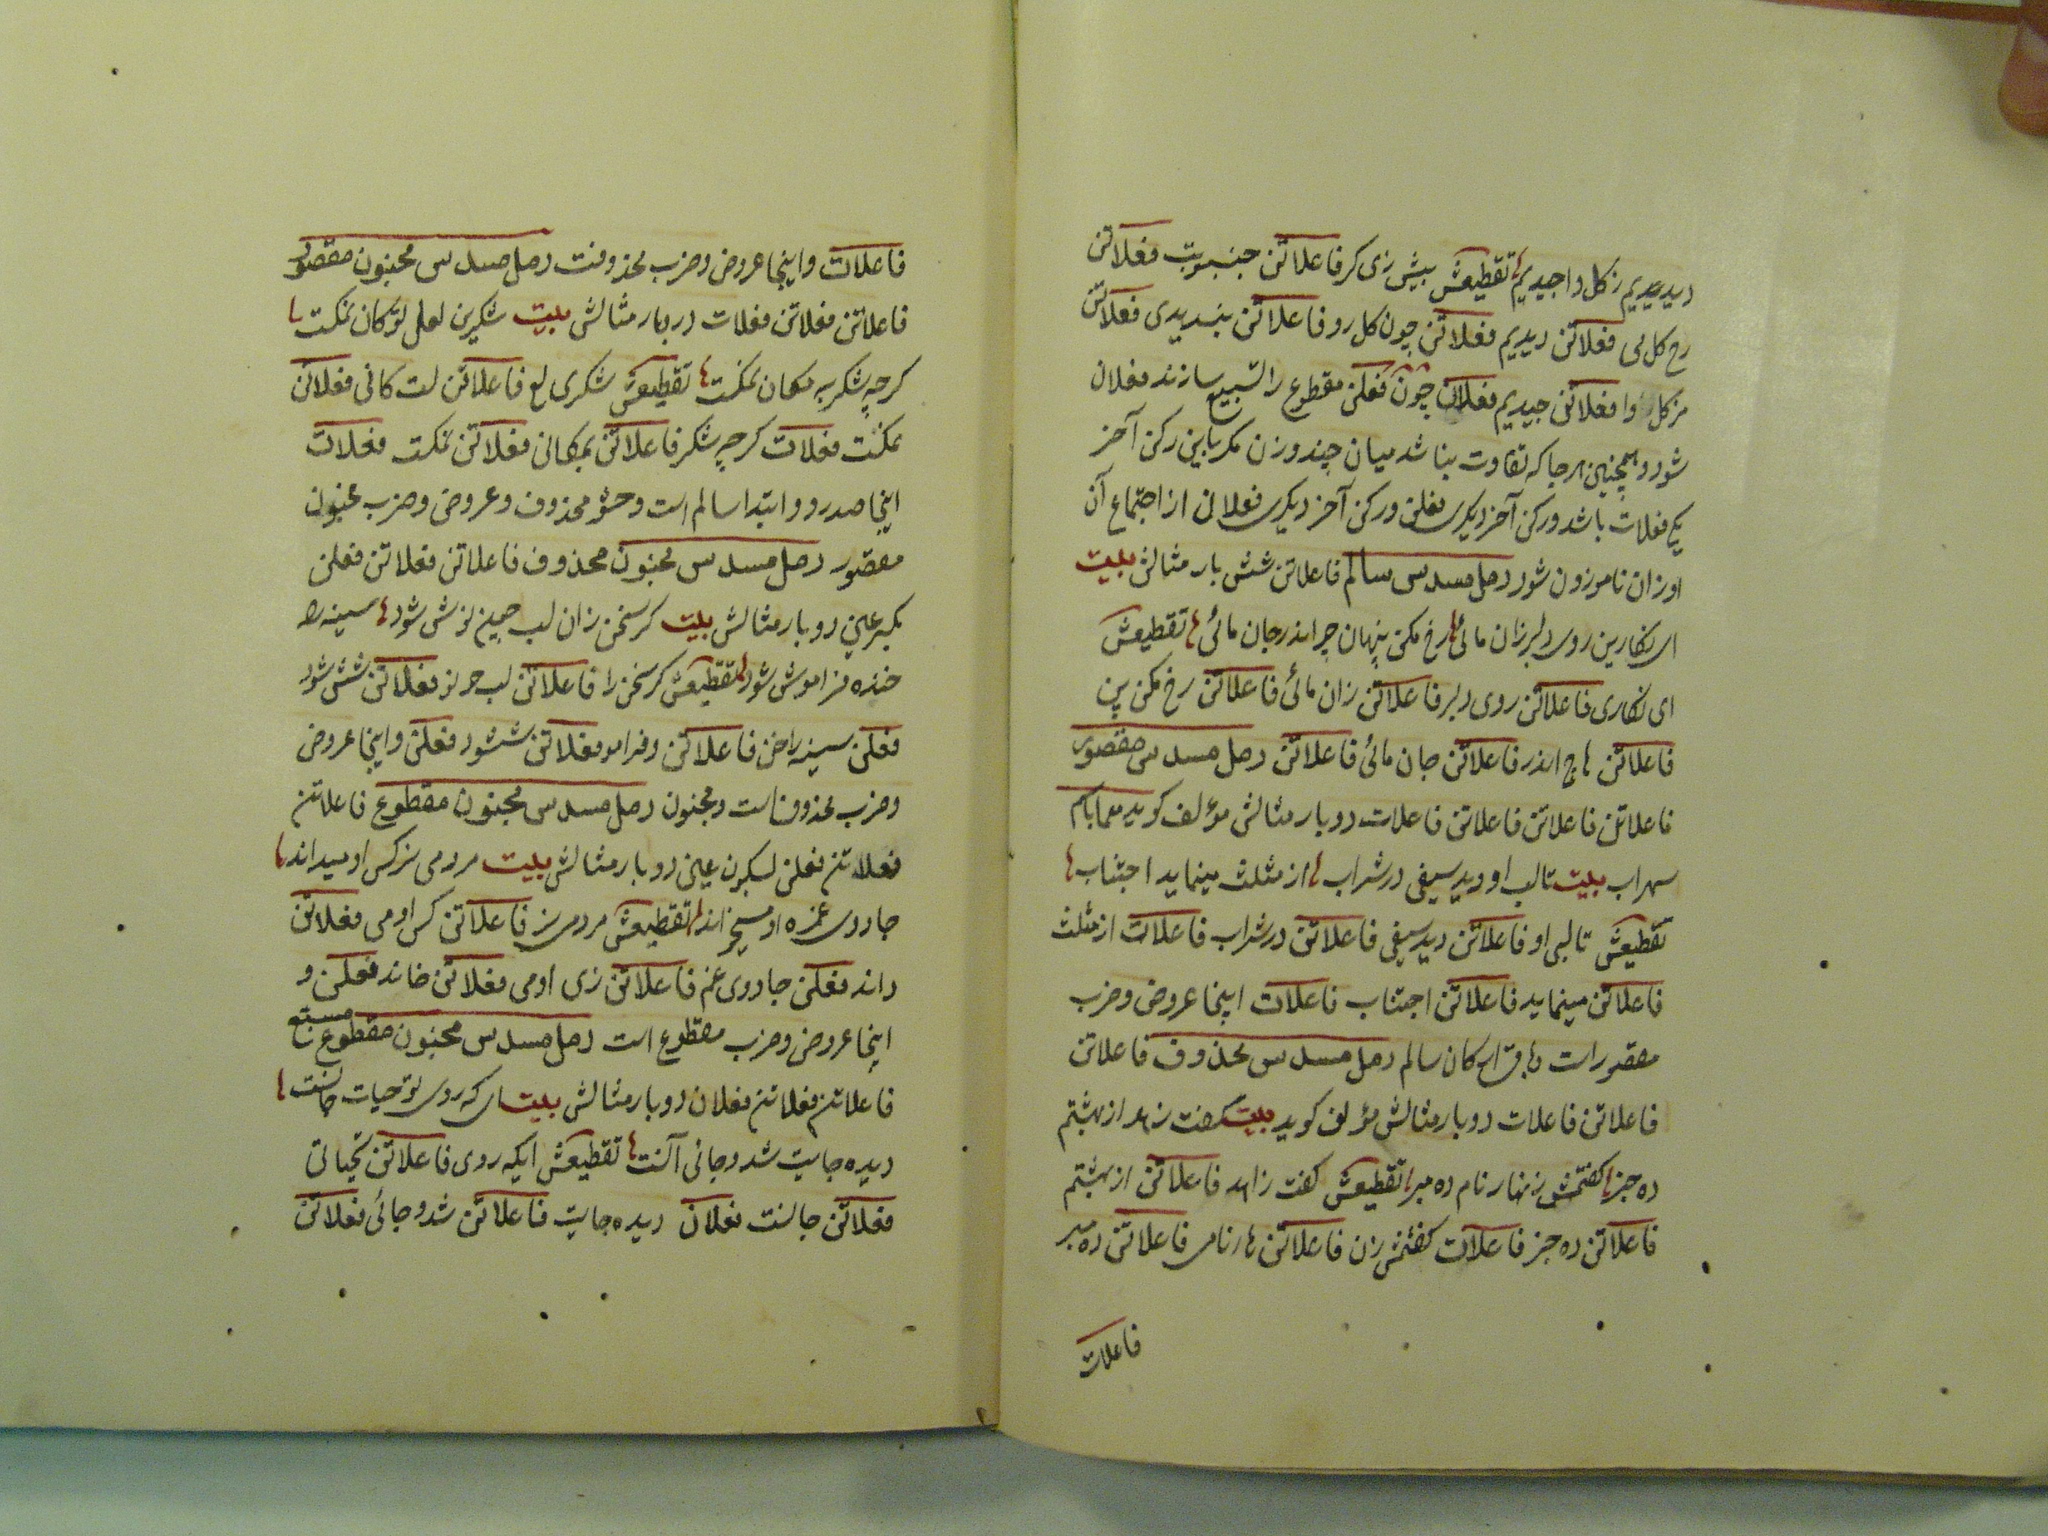 دیدیم ز کل واجیدیم تقطیعش بیش زی کر فاعلاتن فعلاتن
رخ کل می فعلاتن دیدیم فعلاتن چون کل رو فاعلاتن بسدیدی فعلاتن
مز کل وا فعلاتن جیدیم فعلان چون فعلن مقطوع را تسبیغ سازند فعلان
شود و همچنین هر جا که تفاوت بناشد میان چند وزن مکر باین رکن آخر
یکی فعلات باشد و رکن آخر دیکری فعلن و رکن آخر دیکری فعلان از اجتماع آن
اوزان ناموزون شود رمل مسدس سالم فاعلاتن شش بار مثالش بیت
ای نکارین روی دلبر زان مائی رخ مکن پنهان چو اندر جان مائی تقطیعش
ای نکاری فاعلاتن روی دلبر فاعلاتن زان مائی فاعلاتن رخ مکن پن
فاعلاتن هاچ اندر فاعلاتن جان مائی فاعلاتن رمل مسدس مقصور
فاعلاتن فاعلاتن فاعلات دوبار مثالش مؤلف کوید معما باسم
سهراب بیت تا لب او دید سیفی در شراب از مثلث مینماید اجتناب
تقطیعش تا لبی او فاعلاتن دید سیفی فاعلاتن در شراب فاعلات از مثلث
فاعلاتن مینماید فاعلاتن اجتناب فاعلات اینجا عروض و ضرب
مقصور است و باقی ارکان سالم رمل مسدس محذوف فاعلاتن
فاعلاتن فاعلات دوبار مثالش مؤلف کوید بیت کفت زاهد از بهشتم
ده خبر کفتمش زنهار نام ده مبر تقطیعش کفت زاهد فاعلاتن از بهشتم
فاعلاتن ده خبر فاعلات کفتمش زن فاعلاتن هار نامی فاعلاتن ده مبر
فاعلات
فاعلات و اینجا عروض و ضرب محذوفست رمل مسدس مخبون مقصور
فاعلاتن فعلاتن فعلات دوبار مثالش بیت شکرین لعل تو کان نمکت
کرچه شکر به مکان نمکت تقطیعش شکری لع فاعلاتن لت کانی فعلاتن
نمکت فعلات کرچه شکر فاعلاتن بمکانی فعلاتن نمکت فعلات
اینجا صدر و ابتدا سالم است و حشو محذوف و عروض و ضرب مخبون
مقصور رمل مسدس مخبون محذوف فاعلاتن فعلاتن فعلن
بکسر عین دوبار مثالش بیت کر سخن زان لب چون نوش شود سینه را
خنده فراموش شود تقطیعش کر سخن زا فاعلاتن لب چو نو فعلاتن شش شود
فعلن سینه را خن فاعلاتن دفرامو فعلاتن ششود فعلن و اینجا عروض
و ضرب محذوفست و مخبون رمل مسدس مخبون مقطوع فاعلاتن
فعلاتن فعلن بسکون عین دوبار مثالش بیت مردمی نرکس او میداند
جادوی غمزه او خاند تقطیعش مردمی نر فاعلاتن کس او می فعلاتن
داند فعلن جادوی غم فاعلاتن زی او می فعلاتن خاند فعلن و
اینجا عروض و ضرب مقطوع است رمل مسدس مخبون مقطوع مسبغ
فاعلاتن فعلاتن فعلان دوبار مثالش بیت ای که روی تو حیات جانست
دیده جایت شد و جائی آنست تقطیعش ایکه روی فاعلاتن تحیاتی
فعلاتن جانست فعلان دیده جایت فاعلاتن شد و جائی فعلاتن